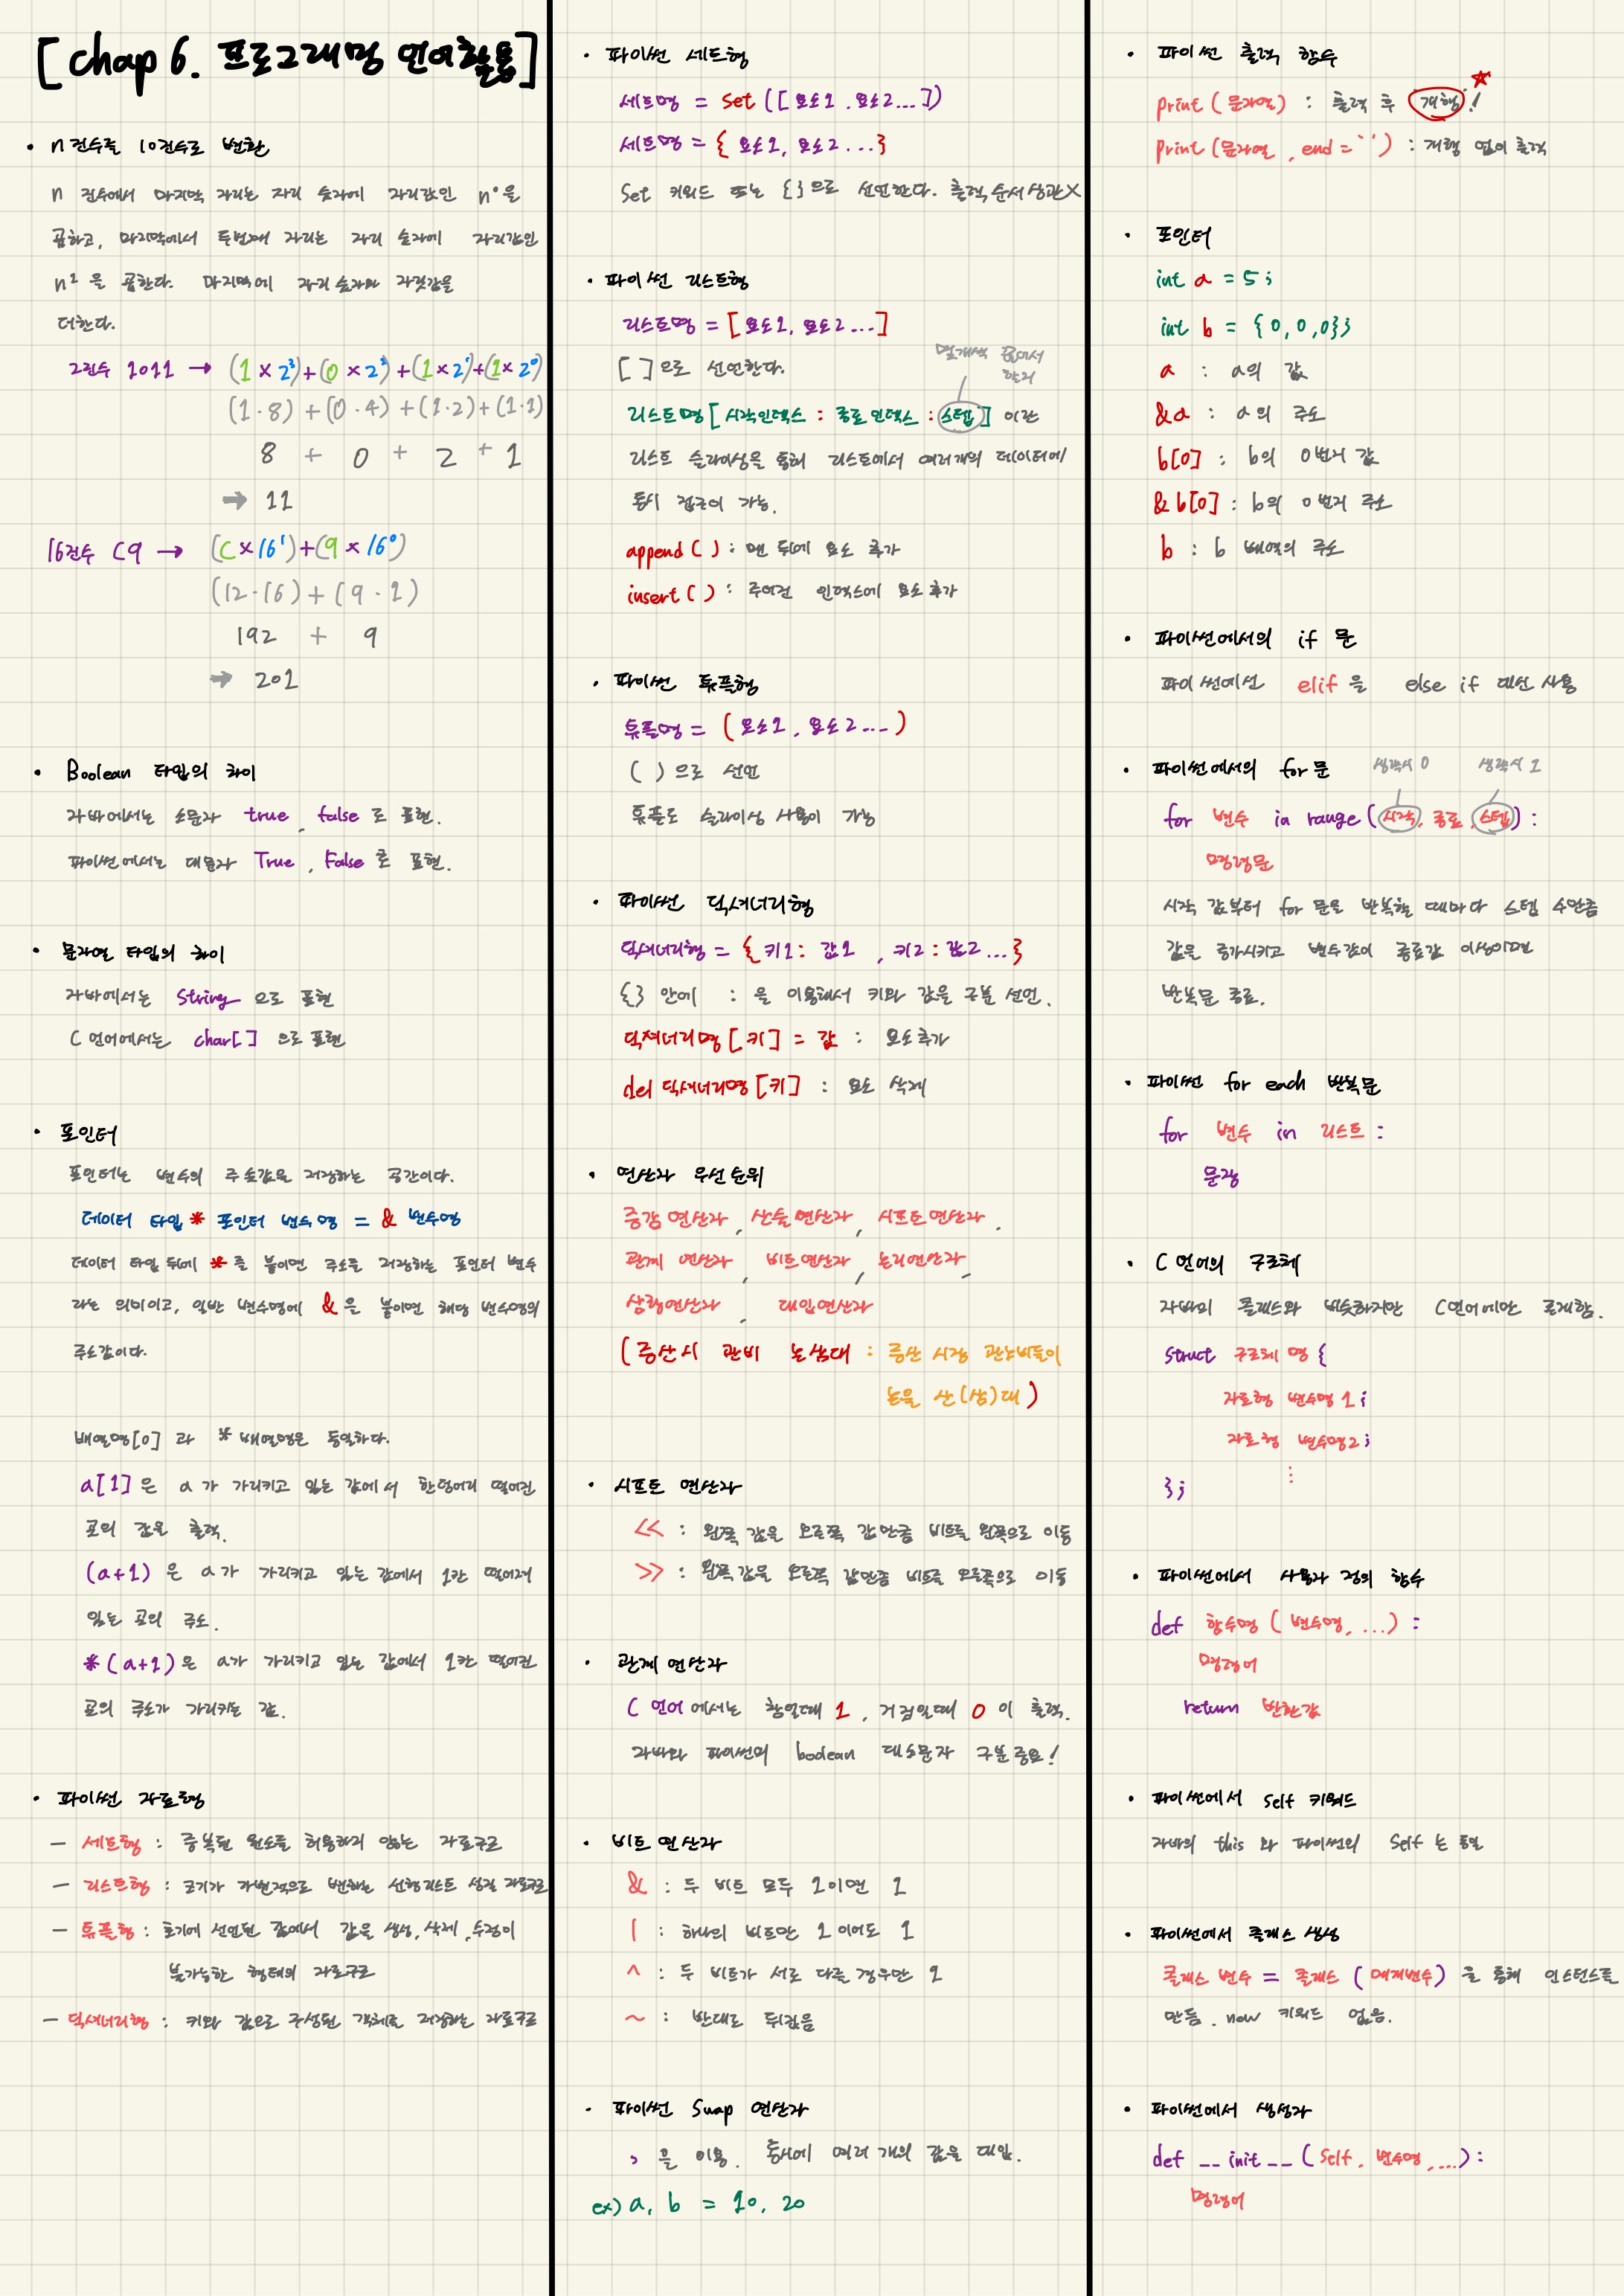 [chap 6. 프로그래밍 언어활용]
• n진수를 10진수로 변환
n 진수에서 마지막 자리는 자리 숫자에 자리값인 n⁰을
곱하고, 마지막에서 두번째 자리는 자리 숫자에 자리값인
n¹ 을 곱한다. 마지막에 자리 숫자와 자릿값을
더한다.
2진수 1011 → (1 × 2³)+(0 × 2²)+(1 × 2¹)+(1× 2⁰)
(1·8) + (0·4) + (1·2) + (1·1)
8 + 0 + 2 + 1
→ 11
16진수 C9 → (C × 16¹)+(9 × 16⁰)
(12·16) + (9·1)
192 + 9
→ 201
• Boolean 타입의 차이
자바에서는 소문자 true, false 로 표현.
파이썬에서는 대문자 True, False 로 표현.
• 문자열 타입의 차이
자바에서는 String 으로 표현
C 언어에서는 char[] 으로 표현
• 포인터
포인터는 변수의 주소값을 저장하는 공간이다.
데이터 타입 * 포인터 변수명 = & 변수명
데이터 타입 뒤에 * 를 붙이면 주소를 저장하는 포인터 변수
라는 의미이고, 일반 변수명에 & 을 붙이면 해당 변수명의
주소값이다.
배열명[0] 과 * 배열명은 동일하다.
a[1]은 a가 가리키고 있는 값에서 한덩어리 떨어진
곳의 값을 출력.
(a+1) 은 a가 가리키고 있는 값에서 1칸 떨어져
있는 곳의 주소.
*(a+1)은 a가 가리키고 있는 값에서 1칸 떨어진
곳의 주소가 가리키는 값.
• 파이썬 자료형
- 세트형 : 중복된 원소를 허용하지 않는 자료구조
- 리스트형 : 크기가 가변적으로 변하는 선형리스트 성질 자료구조
- 튜플형 : 초기에 선언된 값에서 값을 생성, 삭제, 수정이
불가능한 형태의 자료구조
- 딕셔너리형 : 키와 값으로 구성된 객체를 저장하는 자료구조
• 파이썬 세트형
세트명 = set ([요소1, 요소2...])
세트명 = { 요소1, 요소2...}
Set 키워드 또는 { }으로 선언한다. 출력순서상관X
• 파이썬 리스트형
리스트명 = [요소1, 요소2...]
[ ]으로 선언한다.
몇개씩 끊어서
할지
리스트명[시작인덱스 : 종료인덱스 : 스텝] 이란
리스트 슬라이싱을 통해 리스트에서 여러개의 데이터에
동시 접근이 가능.
append( ) : 맨 뒤에 요소 추가
insert( ) : 주어진 인덱스에 요소 추가
• 파이썬 튜플형
튜플명 = (요소1, 요소2...)
( )으로 선언
튜플도 슬라이싱 사용이 가능
• 파이썬 딕셔너리형
딕셔너리형 = { 키1 : 값1 , 키2 : 값2 ...}
{} 안에 : 을 이용해서 키와 값을 구분 선언.
딕셔너리명[키] = 값 : 요소추가
del 딕셔너리명[키] : 요소 삭제
• 연산자 우선순위
증감 연산자, 산술 연산자, 시프트 연산자,
관계 연산자, 비트 연산자, 논리연산자,
삼항연산자, 대입연산자
(증산시 관비 논삼대 : 증산 시장 관노비들이
논을 산(삼)대 )
• 시프트 연산자
<< : 왼쪽 값을 오른쪽 값만큼 비트를 왼쪽으로 이동
>> : 왼쪽 값을 오른쪽 값만큼 비트를 오른쪽으로 이동
• 관계 연산자
C 언어에서는 참일때 1, 거짓일때 0 이 출력.
자바와 파이썬의 boolean 대소문자 구분 중요!
• 비트 연산자
& : 두 비트 모두 1이면 1
| : 하나의 비트만 1 이어도 1
^ : 두 비트가 서로 다를 경우만 1
~ : 반대로 뒤집음
• 파이썬 Swap 연산자
, 을 이용. 동시에 여러 개의 값을 대입.
ex) a, b = 10, 20
• 파이썬 출력 함수
print (문자열) : 출력 후 개행!
print (문자열, end = '') : 개행 없이 출력
• 포인터
int a = 5;
int b = {0,0,0};
a : a의 값
&a : a의 주소
b[0] : b의 0번지 값
&b[0] : b의 0번지 주소
b : b 배열의 주소
• 파이썬에서의 if 문
파이썬에선 elif 을 else if 대신 사용
• 파이썬에서의 for문
생략시 0 생략시 1
for 변수 in range (시작, 종료, 스텝) :
명령문
시작 값부터 for 문을 반복할 때마다 스텝 수만큼
값을 증가시키고 변수값이 종료값 이상이면
반복문 종료.
• 파이썬 for each 반복문
for 변수 in 리스트 :
문장
• C 언어의 구조체
자바의 클래스와 비슷하지만 C언어에만 존재함.
struct 구조체 명 {
자료형 변수명 1;
자료형 변수명2;
⋮
};
• 파이썬에서 사용자 정의 함수
def 함수명 (변수명, ...) :
명령어
return 반환값
• 파이썬에서 Self 키워드
자바의 this 와 파이썬의 Self 는 동일
• 파이썬에서 클래스 생성
클래스 변수 = 클래스 (매개변수) 을 통해 인스턴스를
만듦. new 키워드 없음.
• 파이썬에서 생성자
def __init__ (Self, 변수명, ...) :
명령어